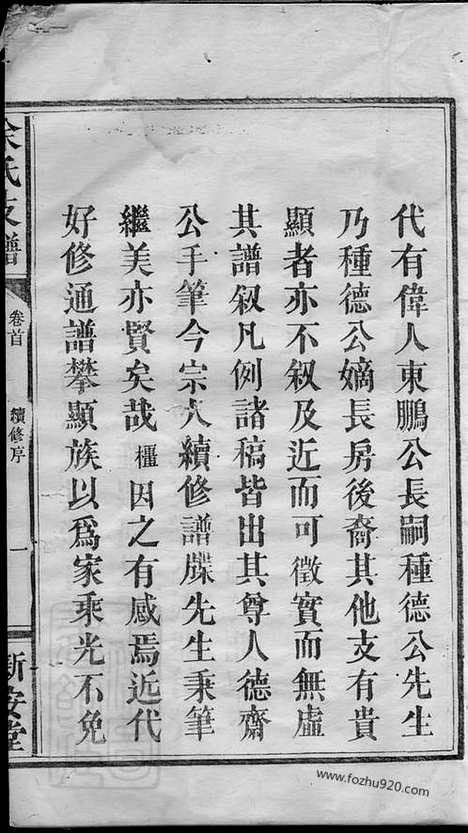 代有偉人東鵬公長嗣種德公先生
乃種德公嫡長房後裔其他支有貴
顯者亦不叙及近而可徵實而無虛
其譜叙凡例諸稿皆出其尊人德齋
公手筆今宗人續修譜牒先生秉筆
繼美亦賢矣哉橿因之有感焉近代
好修通譜攀顯族以爲家乘光不免
氏支譜
卷首
續修序
一
新安堂
www.fozhu920.com